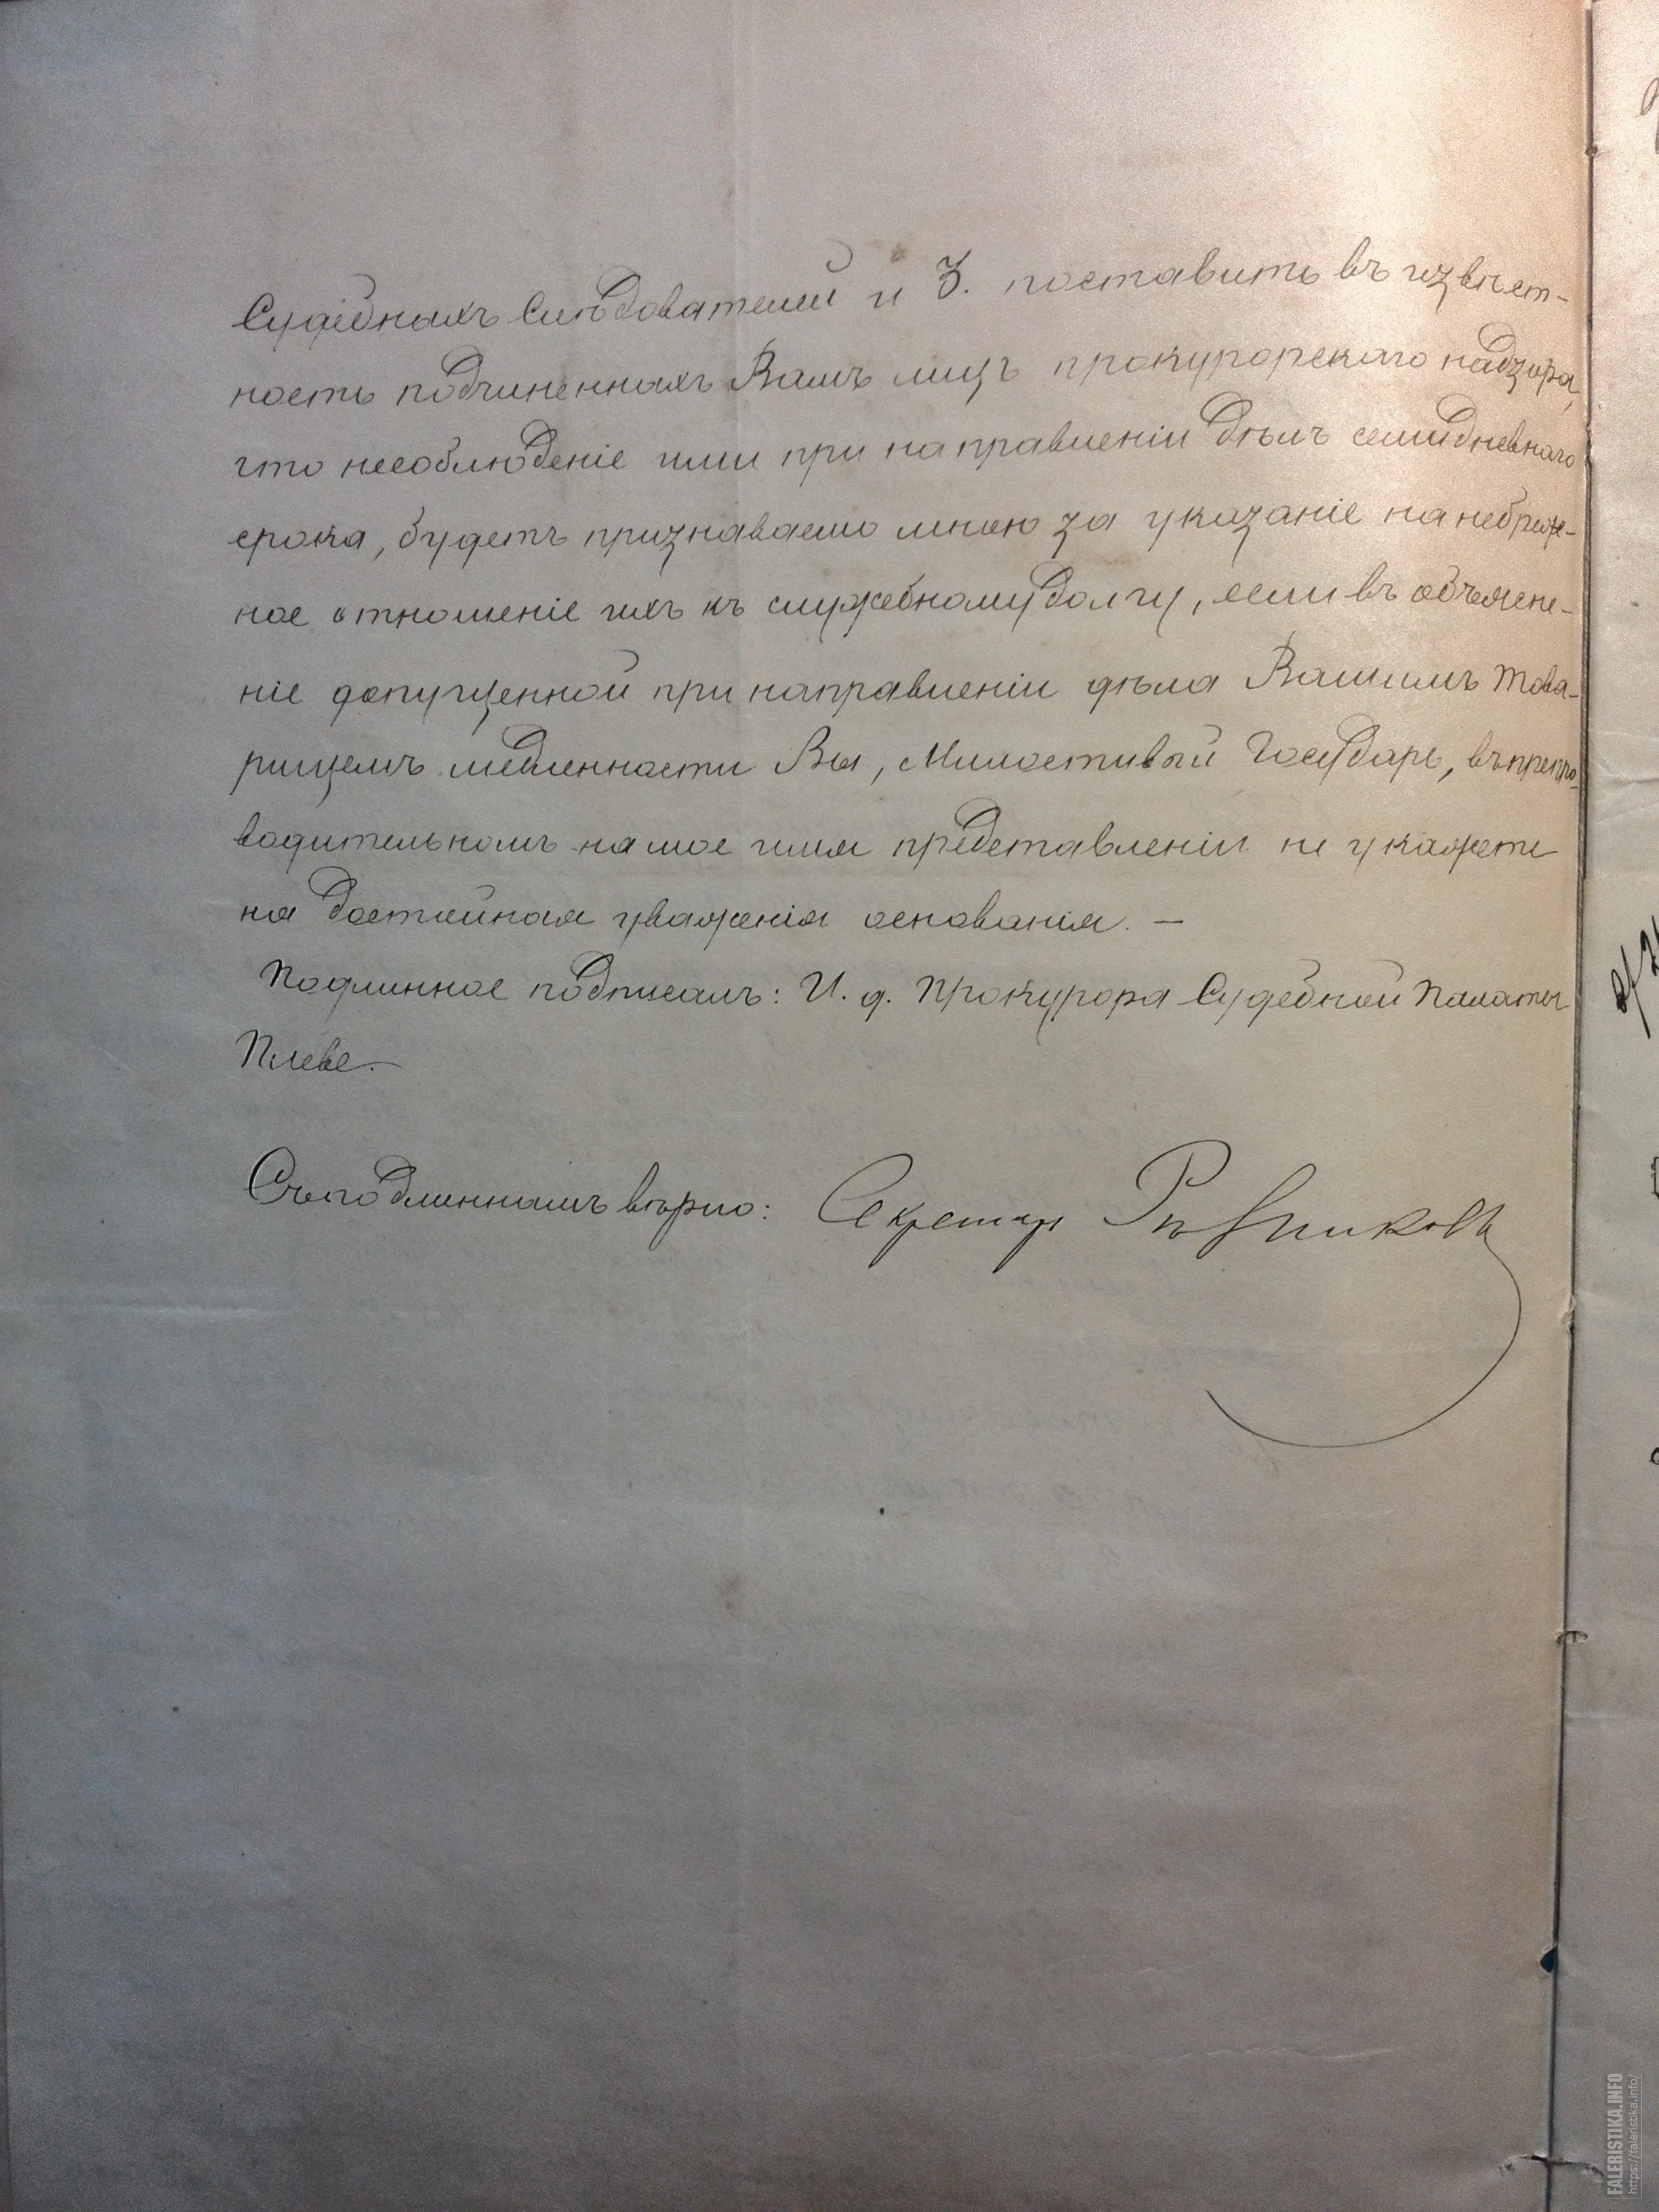 Судебныхъ Слѣдователей и 3. поставить въ извѣст-
ность подчиненныхъ Вамъ лицъ прокурорскаго надзора,
что несоблюденіе ими при направленіи дѣлъ семидневнаго
срока, будетъ признаваемо мною за указаніе на небреж-
ное отношеніе ихъ къ служебному долгу, если въ объясне-
ніе допущенной при направленіи дѣла Вашимъ Това-
рищемъ медленности Вы, Милостивый Государь, въ препро-
водительномъ на мое имя представленіи не укажете
на достойныя уваженія основанія. —
Подлинное подписалъ: И. д. Прокурора Судебной Палаты
Плеве. —
Съ подлиннымъ вѣрно: Секретарь
FALERISTIKA.INFO
https://faleristika.info/